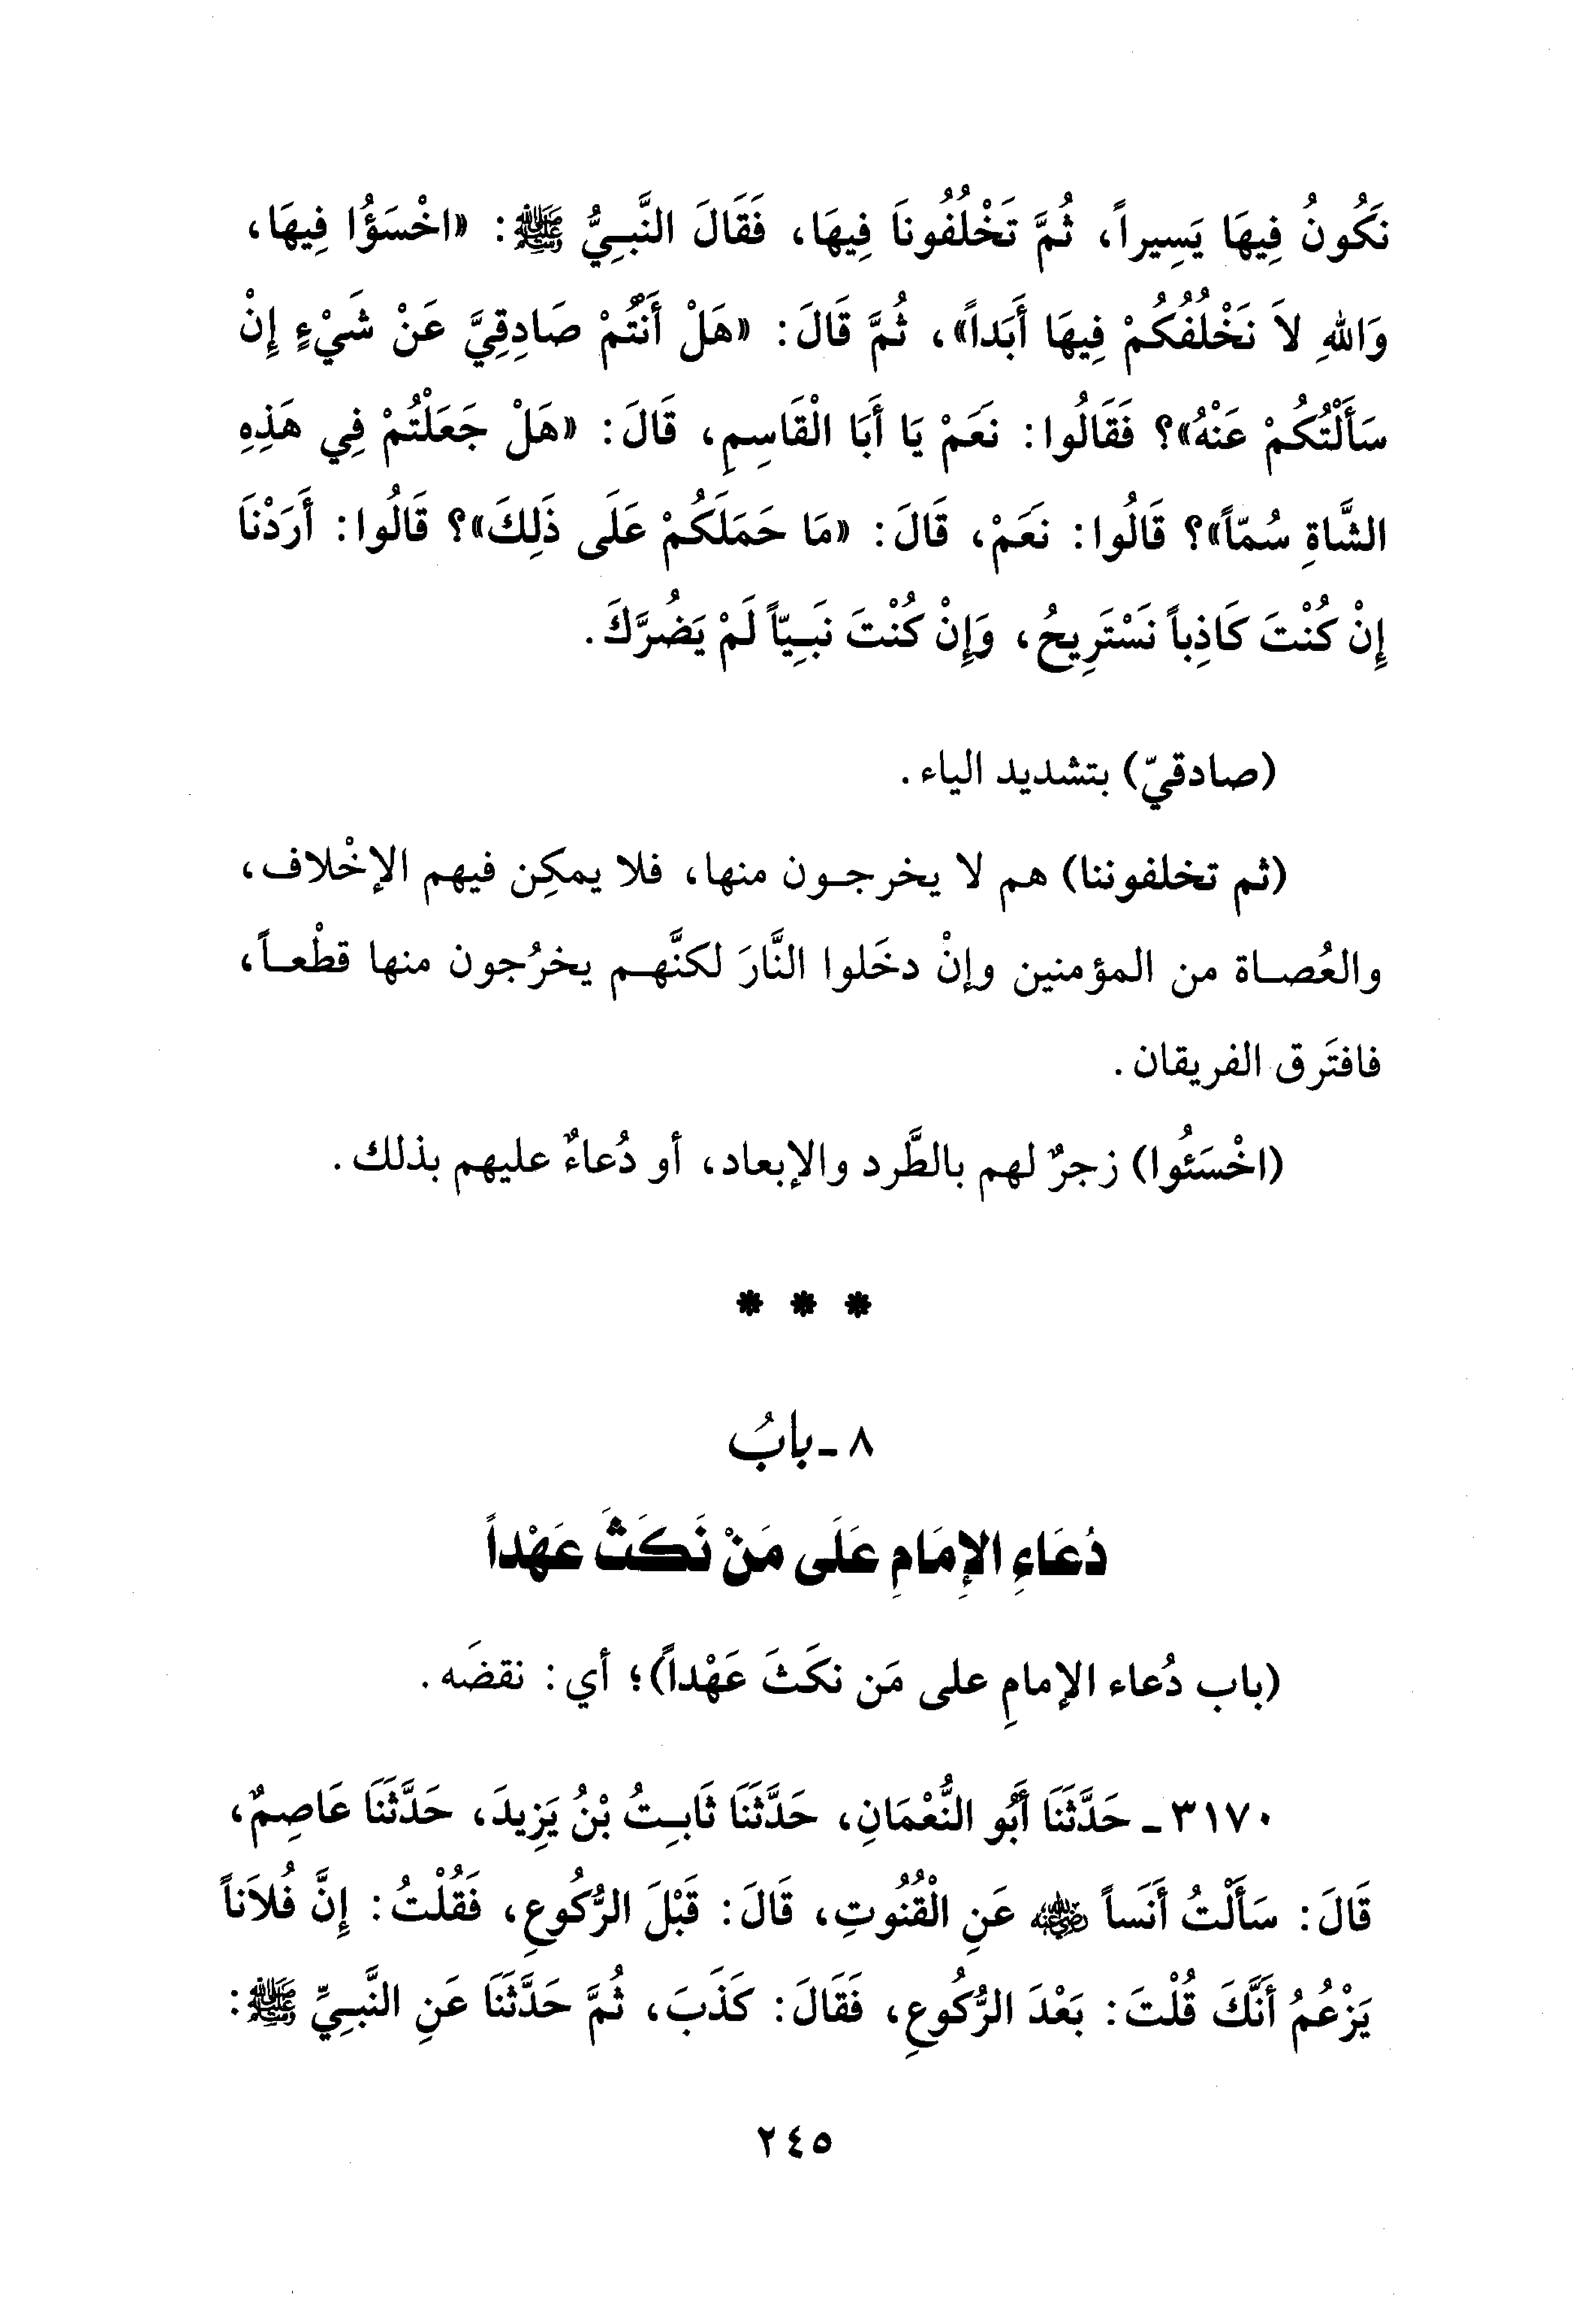 نَكُونُ فِيهَا يَسِيراً، ثُمَّ تَخْلُفُونَا فِيهَا، فَقَالَ النَّبِيُّ ﷺ: «اخْسَؤُا فِيهَا،
وَاللهِ لاَ نَخْلُفُكُمْ فِيهَا أَبَداً»، ثُمَّ قَالَ: «هَلْ أَنْتُمْ صَادِقِيَّ عَنْ شَيْءٍ إِنْ
سَأَلْتُكُمْ عَنْهُ»؟ فَقَالُوا: نَعَمْ يَا أَبَا الْقَاسِمِ، قَالَ: «هَلْ جَعَلْتُمْ فِي هَذِهِ
الشَّاةِ سُمّاً»؟ قَالُوا: نَعَمْ، قَالَ: «مَا حَمَلَكُمْ عَلَى ذَلِكَ»؟ قَالُوا: أَرَدْنَا
إِنْ كُنْتَ كَاذِباً نَسْتَرِيحُ، وَإِنْ كُنْتَ نَبِيّاً لَمْ يَضُرَّكَ.
(صادقيّ) بتشديد الياء.
(ثم تخلفوننا) هم لا يخرجون منها، فلا يمكِن فيهم الإخْلاف،
والعُصاة من المؤمنين وإنْ دخَلوا النَّارَ لكنَّهم يخرُجون منها قطْعاً،
فافتَرق الفريقان.
(اخْسَئُوا) زجرٌ لهم بالطَّرد والإبعاد، أو دُعاءٌ عليهم بذلك.
* * *
٨ - بابُ
دُعَاءِ الإِمَامِ عَلَى مَنْ نَكَثَ عَهْداً
(باب دُعاء الإمامِ على مَن نكَثَ عَهْداً)؛ أي: نقضَه.
٣١٧٠ - حَدَّثَنَا أَبُو النُّعْمَانِ، حَدَّثَنَا ثَابِتُ بْنُ يَزِيدَ، حَدَّثَنَا عَاصِمٌ،
قَالَ: سَأَلْتُ أَنَساً رضي الله عنه عَنِ الْقُنُوتِ، قَالَ: قَبْلَ الرُّكُوعِ، فَقُلْتُ: إِنَّ فُلاَناً
يَزْعُمُ أَنَّكَ قُلْتَ: بَعْدَ الرُّكُوعِ، فَقَالَ: كَذَبَ، ثُمَّ حَدَّثَنَا عَنِ النَّبِيِّ ﷺ:
٢٤٥